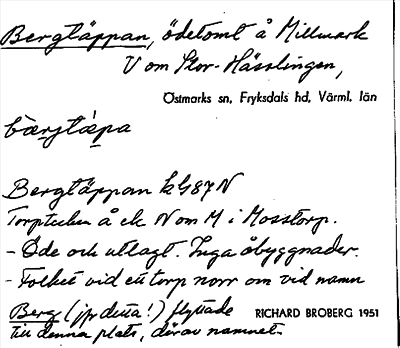 Bergtäppan, ödetomt å Millmark
V om Stor-Hässlingen,
Östmarks sn, Fryksdals hd, Värml. län
bærjtæpa
Bergtäppan kG87N
Torpställe å ek N om M i Mosstorp.
- Öde och utlagt. Inga åbyggnader.
- Folket vid ett torp norr om vid namn
Berg (jfr detta!) flyttade
till denna plats, därav namnet.
RICHARD BROBERG 1951